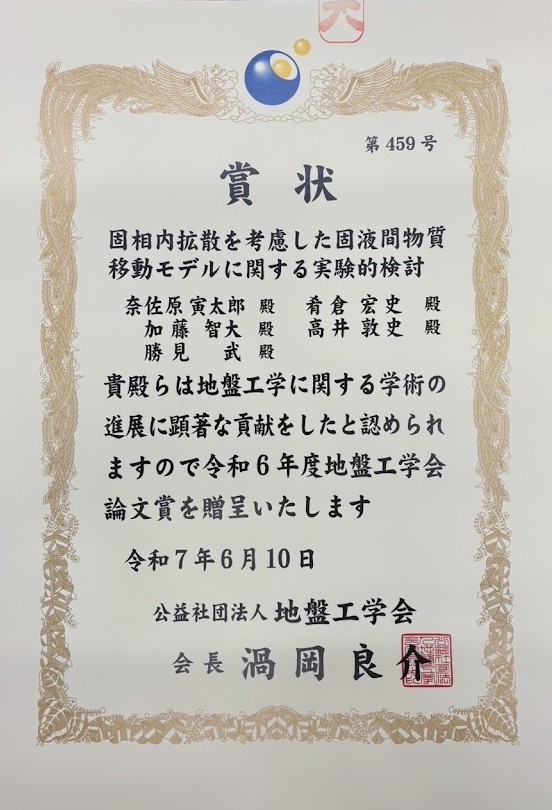 第459号
賞状
固相内拡散を考慮した固液間物質
移動モデルに関する実験的検討
奈佐原 寅太郎 殿 肴倉 宏史 殿
加藤 智大 殿 高井 敦史 殿
勝見 武 殿
貴殿らは地盤工学に関する学術の
進展に顕著な貢献をしたと認められ
ますので令和6年度地盤工学会
論文賞を贈呈いたします
令和7年6月10日
公益社団法人 地盤工学会
会長 渦岡良介